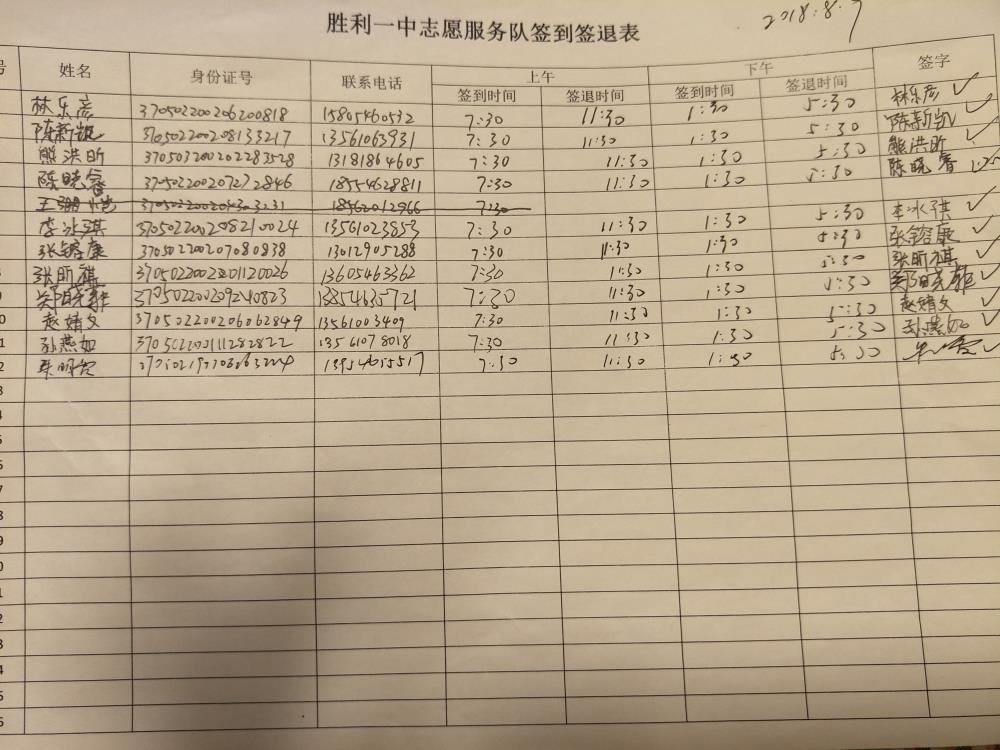 2018.8.7
胜利一中志愿服务队签到签退表
号 姓名 身份证号 联系电话 上午 下午 签字
签到时间 签退时间 签到时间 签退时间
林乐彦 370502200206200818 15805460532 7:30 11:30 1:30 5:30 林乐彦 ✓
陈新凯 370502200208133217 13561063931 7:30 11:30 1:30 5:30 陈新凯 ✓
熊洪昕 370503200202283528 13181864605 7:30 11:30 1:30 5:30 熊洪昕
陈晓睿 370502200207272846 18554628811 7:30 11:30 1:30 5:30 陈晓睿 ✓
18562012966 7:30
李冰琪 370502200208210024 13561023853 7:30 11:30 1:30 5:30 李冰琪 ✓
张镕康 370502200207080838 13012905288 7:30 11:30 1:30 5:30 张镕康 ✓
张昕祺 13605463362 7:30 11:30 1:30 5:30 张昕祺 ✓
370502200209240823 18854635721 7:30 11:30 1:30 5:30 ✓
赵婧文 370502200206062849 13561003409 7:30 11:30 1:30 5:30 赵婧文 ✓
孙燕如 370502200111282822 13561078018 7:30 11:30 1:30 5:30 孙燕如 ✓
7:30 11:30 1:30 5:30 ✓